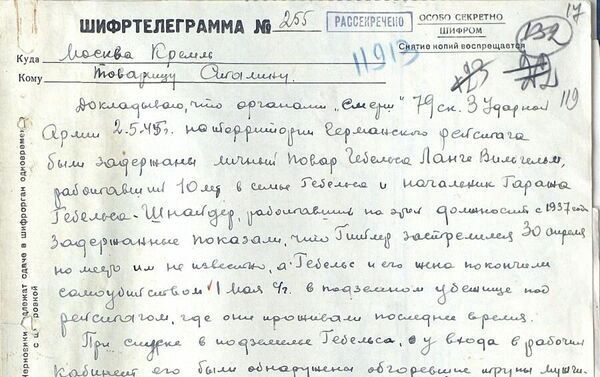 17
ШИФРТЕЛЕГРАММА № 255
РАССЕКРЕЧЕНО
ОСОБО СЕКРЕТНО
ШИФРОМ
132
Снятие копий воспрещается
Куда Москва Кремль
11913
Кому Товарищу Сталину.
Докладываю, что органами "Смерш" 79 ск. 3 Ударной
119
Армии 2.5.45г. на территории Германского рейхстага
были задержаны личный повар Гебельса Ланге Вильгельм,
работавший 10 лет в семье Гебельса и начальник Гаража
Гебельса-Шнайдер, работавший на этой должности с 1937 года
Задержанные показали, что Гитлер застрелился 30 апреля
но место им не известно, а Гебельс и его жена покончили
самоубийством 1 мая с/г. в подземном убежище под
рейхстагом, где они проживали последнее время.
При спуске в подземелье Гебельса, у входа в рабочий
кабинет его были обнаружены обгоревшие трупы мужчи-
Черновики надлежат сдаче в шифрорган одновременно
с ш ровкой